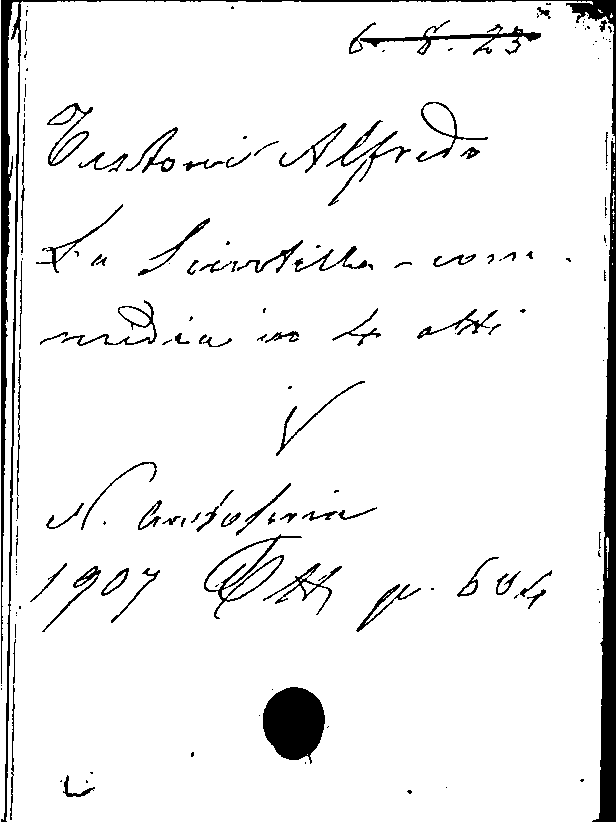 6. 8. 23
Testoni Alfredo
La Scintilla - com-
media in 4 atti
V
N. Antologia
1907 p. 604